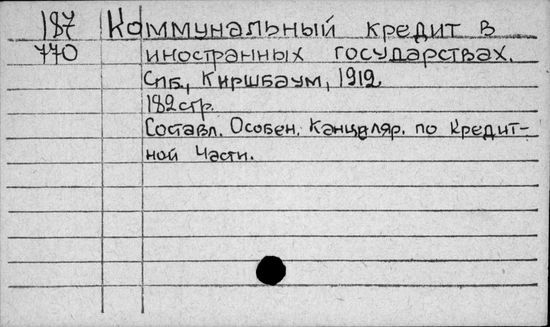 187 Коммунальный кредит в
770 иностранных государствах.
Спб., Киршбаум, 1912
182 стр.
Составл. Особен. Канцеляр. по Кредит-
ной Части.